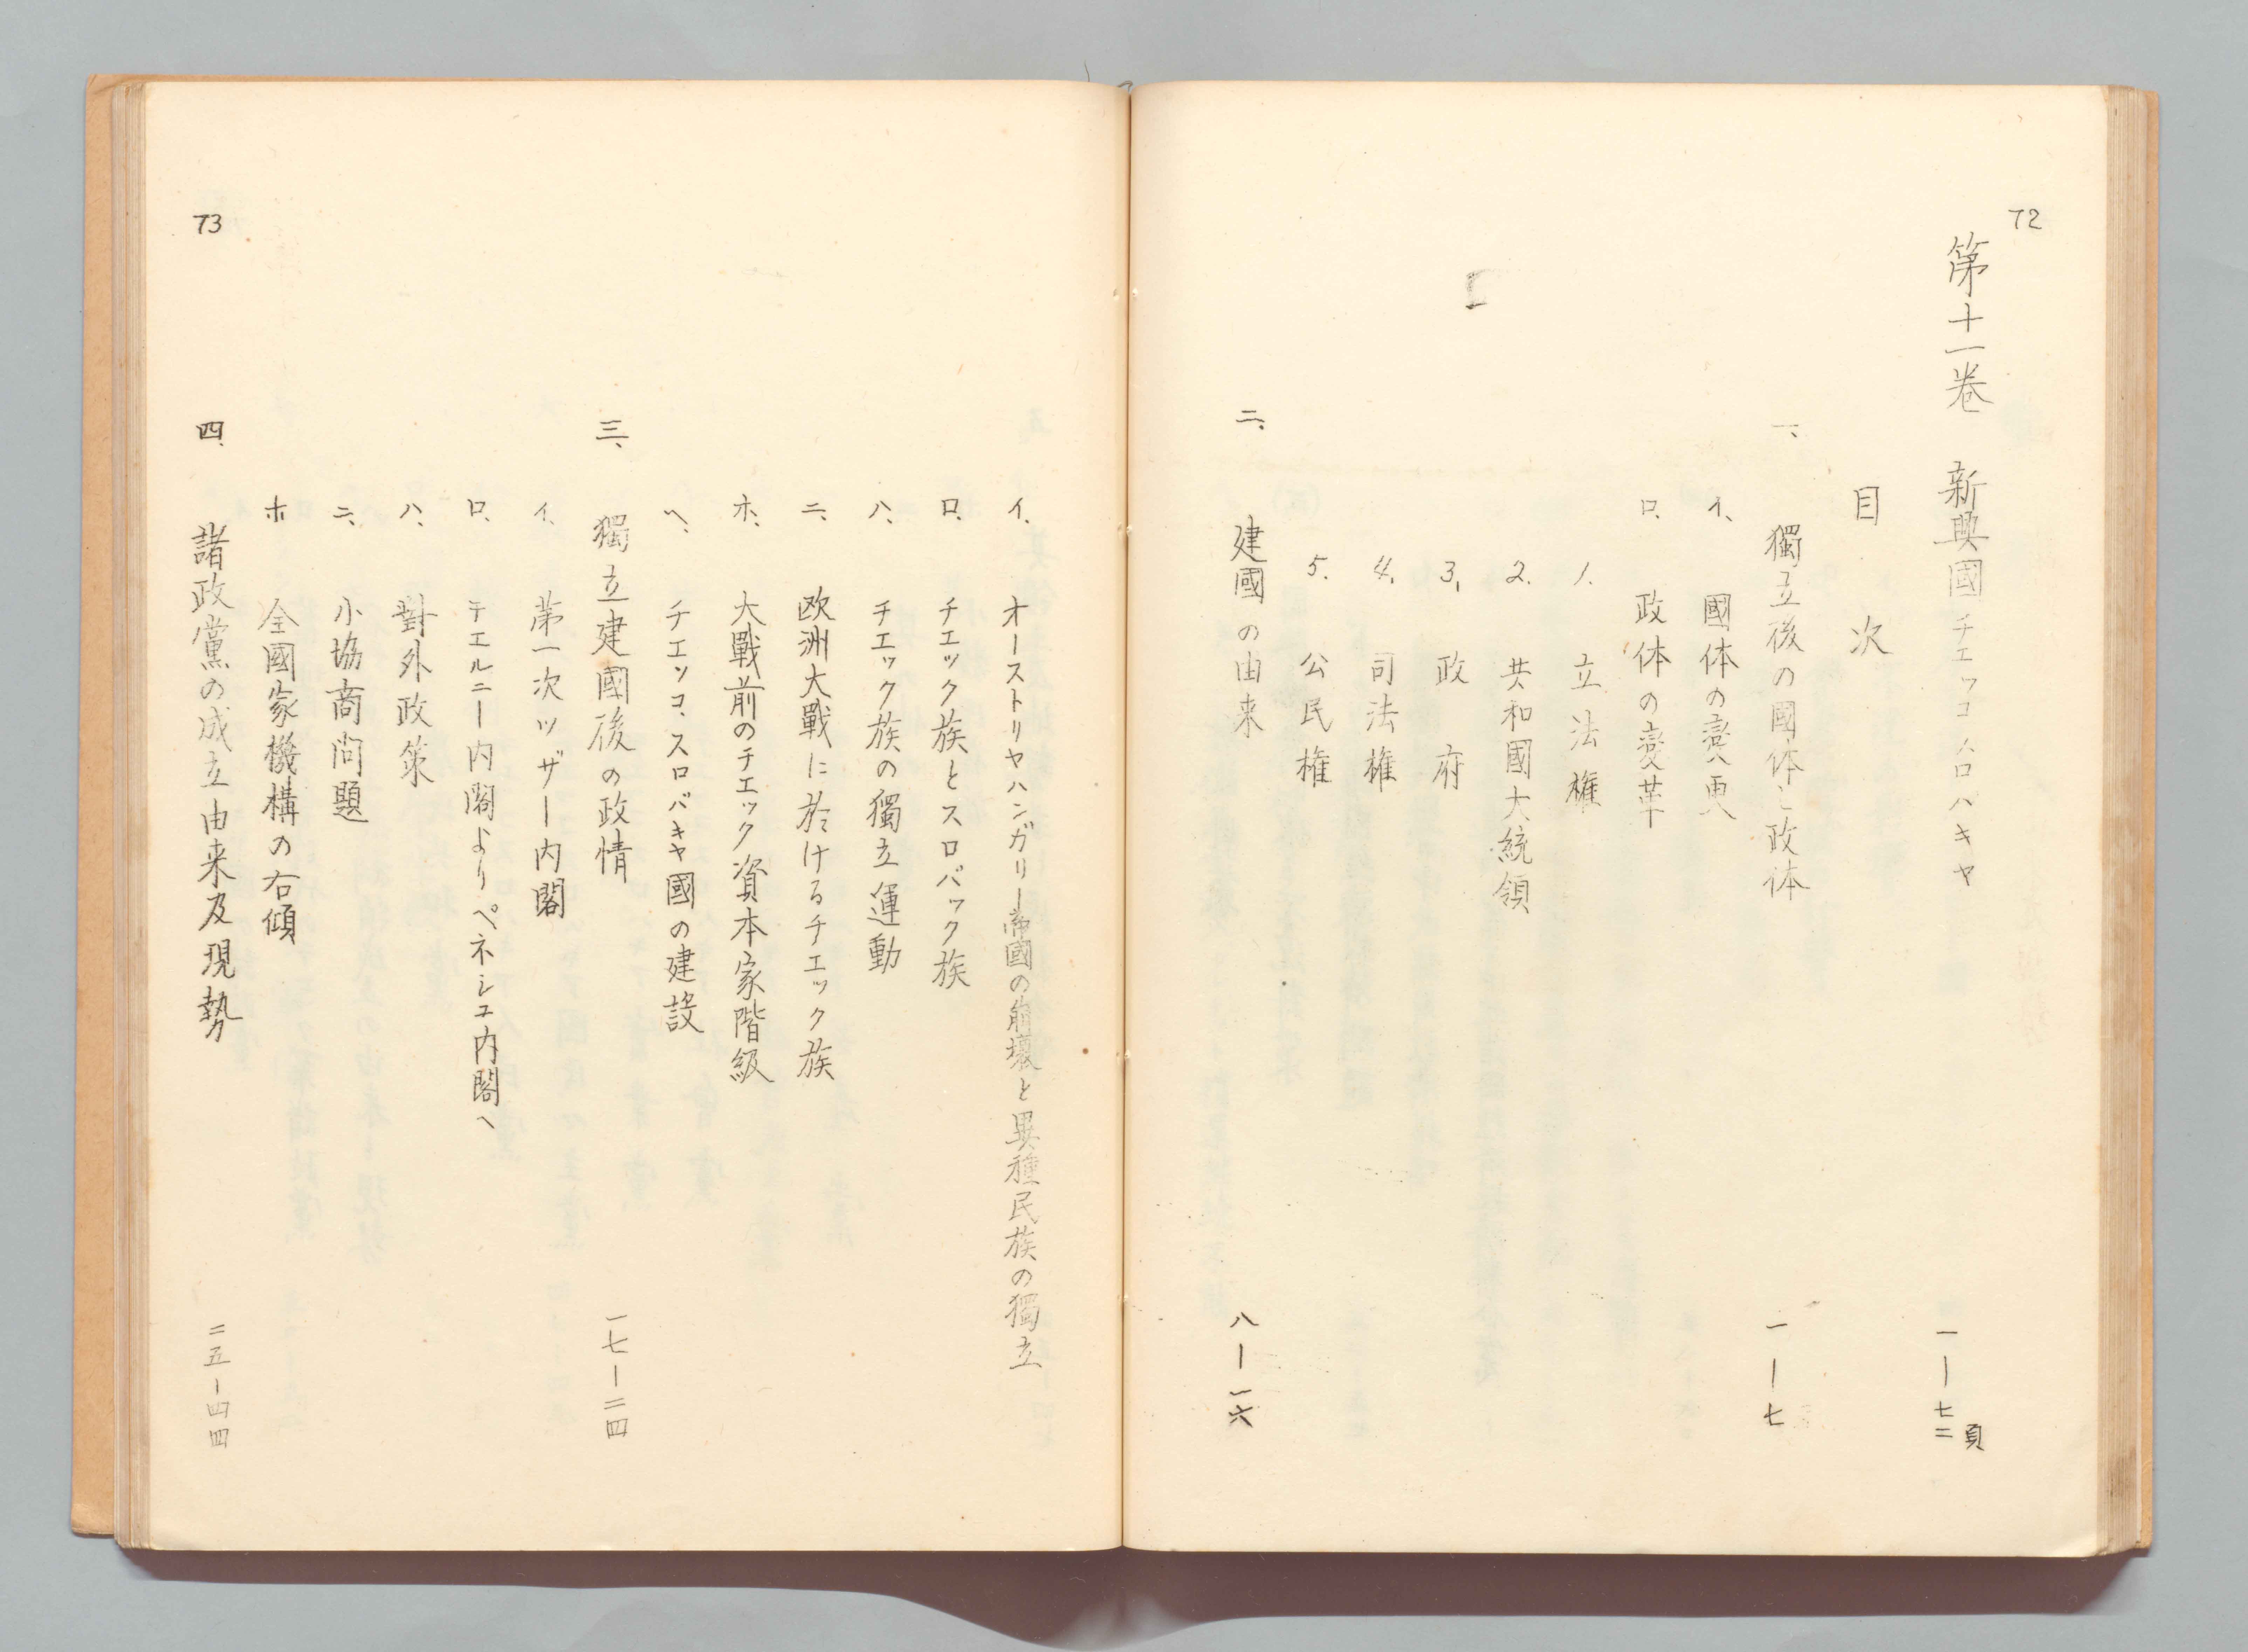 72
第十一巻　新興國チエッコスロバキヤ　一―七二頁
目次
一、獨立後の國体と政体　一―七
イ、國体の変更
ロ、政体の変革
1. 立法権
2. 共和國大統領
3. 政府
4. 司法権
5. 公民権
二、建國の由来　八―一六
イ、オーストリヤハンガリー帝國の崩壊と異種民族の獨立
ロ、チエック族とスロバック族
ハ、チエック族の獨立運動
ニ、欧洲大戰に於けるチエック族
ホ、大戰前のチエック資本家階級
ヘ、チエツコ、スロバキヤ國の建設
三、獨立建國後の政情　一七―二四
イ、第一次ツザー内閣
ロ、チエルニー内閣よりペネシユ内閣へ
ハ、對外政策
ニ、小協商問題
ホ　全國家機構の右傾
四、諸政黨の成立由来及現勢　二五―四四
73